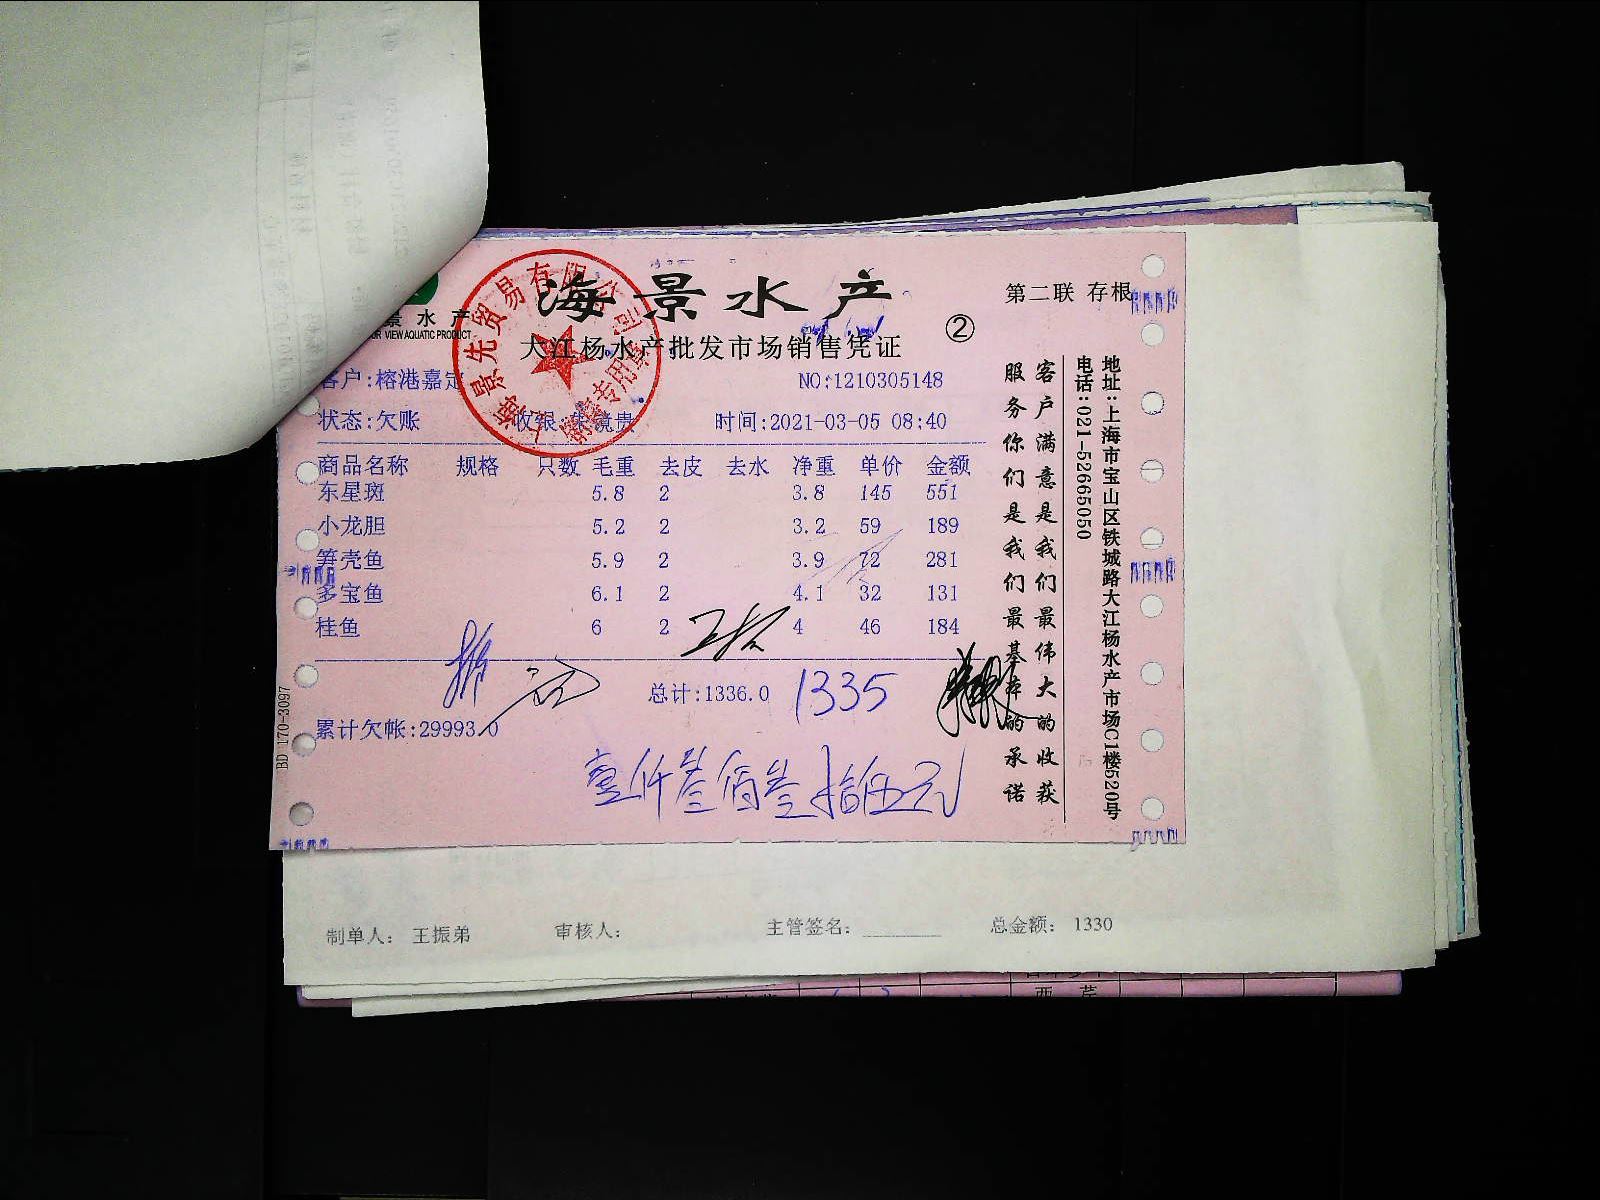 景水产
VIEW AQUATIC PRODUCT
海景水产
第二联 存根
大江杨水产批发市场销售凭证
②
客户:榕港嘉定
NO:1210305148
状态:欠账
收银:朱镜贵
时间:2021-03-05 08:40
商品名称 规格 只数 毛重 去皮 去水 净重 单价 金额
东星斑 5.8 2 3.8 145 551
小龙胆 5.2 2 3.2 59 189
笋壳鱼 5.9 2 3.9 72 281
多宝鱼 6.1 2 4.1 32 131
桂鱼 6 2 4 46 184
总计:1336.0 1335
累计欠帐:29993.0
壹仟叁佰叁拾伍元
客户满意是我们最伟大的收获
服务你们是我们最基本的承诺
地址:上海市宝山区铁城路大江杨水产市场C1楼520号
电话:021-52665050
BD 170-3097
制单人: 王振弟 审核人: 主管签名: 总金额: 1330
西 芹